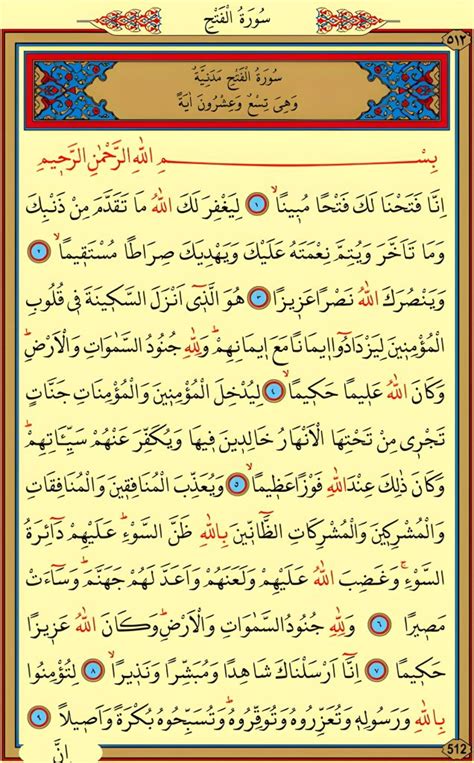 سُورَةُ الْفَتْحِ
٥١٢
سُورَةُ الْفَتْحِ مَدَنِيَّةٌ
وَهِيَ تِسْعٌ وَعِشْرُونَ اٰيَةً
بِسْــــمِ اللّٰهِ الرَّحْمٰنِ الرَّحٖيمِ
اِنَّا فَتَحْنَا لَكَ فَتْحًا مُبٖينًاۙ ١ لِيَغْفِرَ لَكَ اللّٰهُ مَا تَقَدَّمَ مِنْ ذَنْبِكَ
وَمَا تَاَخَّرَ وَيُتِمَّ نِعْمَتَهُ عَلَيْكَ وَيَهْدِيَكَ صِرَاطًا مُسْتَقٖيمًاۙ ٢
وَيَنْصُرَكَ اللّٰهُ نَصْرًا عَزٖيزًا ٣ هُوَ الَّذٖٓي اَنْزَلَ السَّكٖينَةَ فٖي قُلُوبِ
الْمُؤْمِنٖينَ لِيَزْدَادُٓوا اٖيمَانًا مَعَ اٖيمَانِهِمْؕ وَلِلّٰهِ جُنُودُ السَّمٰوَاتِ وَالْاَرْضِؕ
وَكَانَ اللّٰهُ عَلٖيمًا حَكٖيمًاۙ ٤ لِيُدْخِلَ الْمُؤْمِنٖينَ وَالْمُؤْمِنَاتِ جَنَّاتٍ
تَجْرٖي مِنْ تَحْتِهَا الْاَنْهَارُ خَالِدٖينَ فٖيهَا وَيُكَفِّرَ عَنْهُمْ سَيِّـَٔاتِهِمْؕ
وَكَانَ ذٰلِكَ عِنْدَ اللّٰهِ فَوْزًا عَظٖيمًاۙ ٥ وَيُعَذِّبَ الْمُنَافِقٖينَ وَالْمُنَافِقَاتِ
وَالْمُشْرِكٖينَ وَالْمُشْرِكَاتِ الظَّٓانّٖينَ بِاللّٰهِ ظَنَّ السَّوْءِؕ عَلَيْهِمْ دَٓائِرَةُ
السَّوْءِۚ وَغَضِبَ اللّٰهُ عَلَيْهِمْ وَلَعَنَهُمْ وَاَعَدَّ لَهُمْ جَهَنَّمَؕ وَسَٓاءَتْ
مَصٖيرًا ٦ وَلِلّٰهِ جُنُودُ السَّمٰوَاتِ وَالْاَرْضِؕ وَكَانَ اللّٰهُ عَزٖيزًا
حَكٖيمًا ٧ اِنَّٓا اَرْسَلْنَاكَ شَاهِدًا وَمُبَشِّرًا وَنَذٖيرًاۙ ٨ لِتُؤْمِنُوا
بِاللّٰهِ وَرَسُولِهٖ وَتُعَزِّرُوهُ وَتُوَقِّرُوهُؕ وَتُسَبِّحُوهُ بُكْرَةً وَاَصٖيلًا ٩
اِنَّ
512